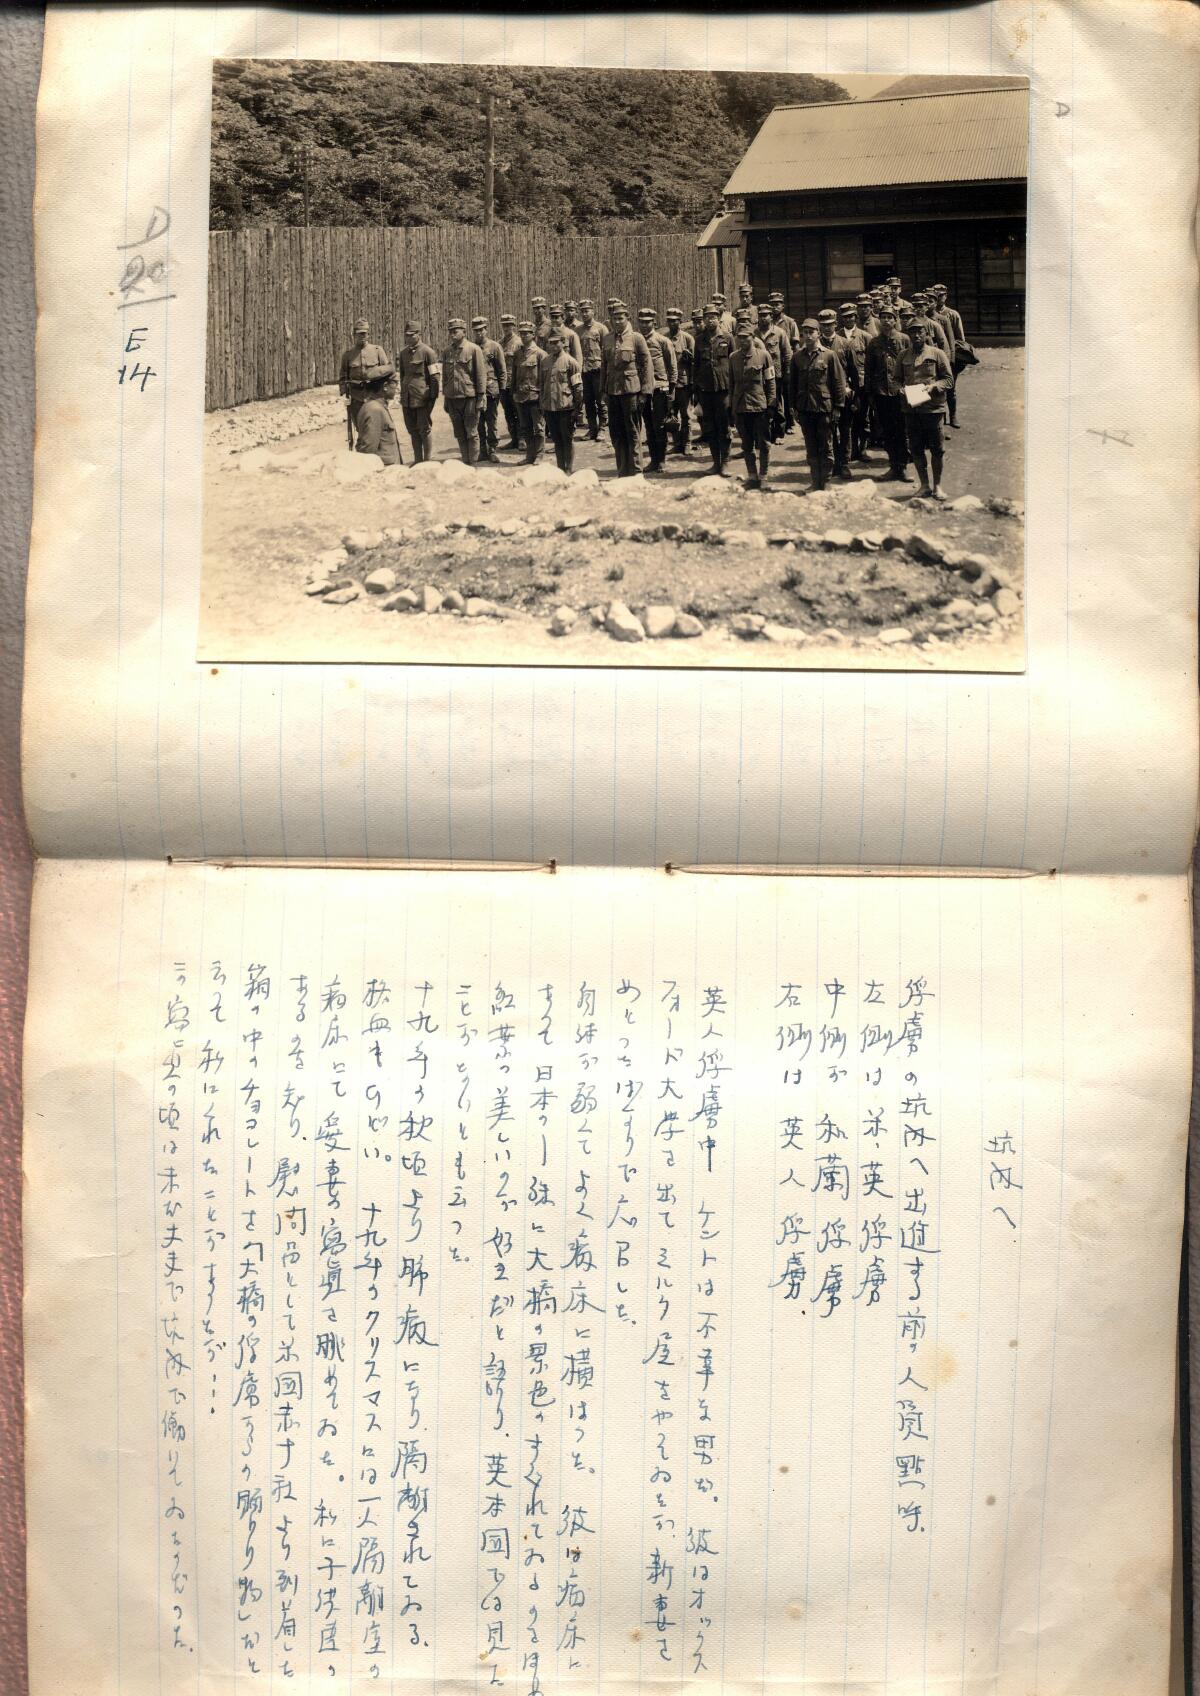 D
20
E
14
坑内へ
俘虜の坑内へ出進する前の人員點呼.
左側は米、英俘虜
中側が和蘭俘虜
右側は英人俘虜.
英人俘虜中 ケントは不幸な男だ。彼はオックス
フォード大学を出てミルク屋をやってゐたが、新妻を
めとったばかりで応召した。
身体が弱くてよく病床に横はった。彼は病床に
まって日本の 殊に大橋の景色のすぐれてゐるのをほめ
紅葉の美しいのが好きだと語り、英本國では見た
ことがないとも云った。
十九年の秋頃より肺病になり、隔離されてゐる、
喀血もひどい。十九年のクリスマスには一人隔離室の
病床にて愛妻の寫眞を眺めてゐた。私に子供達の
あるのを知り、慰問品として米國赤十社より到着した
箱の中のチョコレートを「大橋の俘虜からの贈り物」だと
云って私にくれたことがあったが・・・
この寫真の頃は未だ丈夫で坑内で働いてゐたのだった.